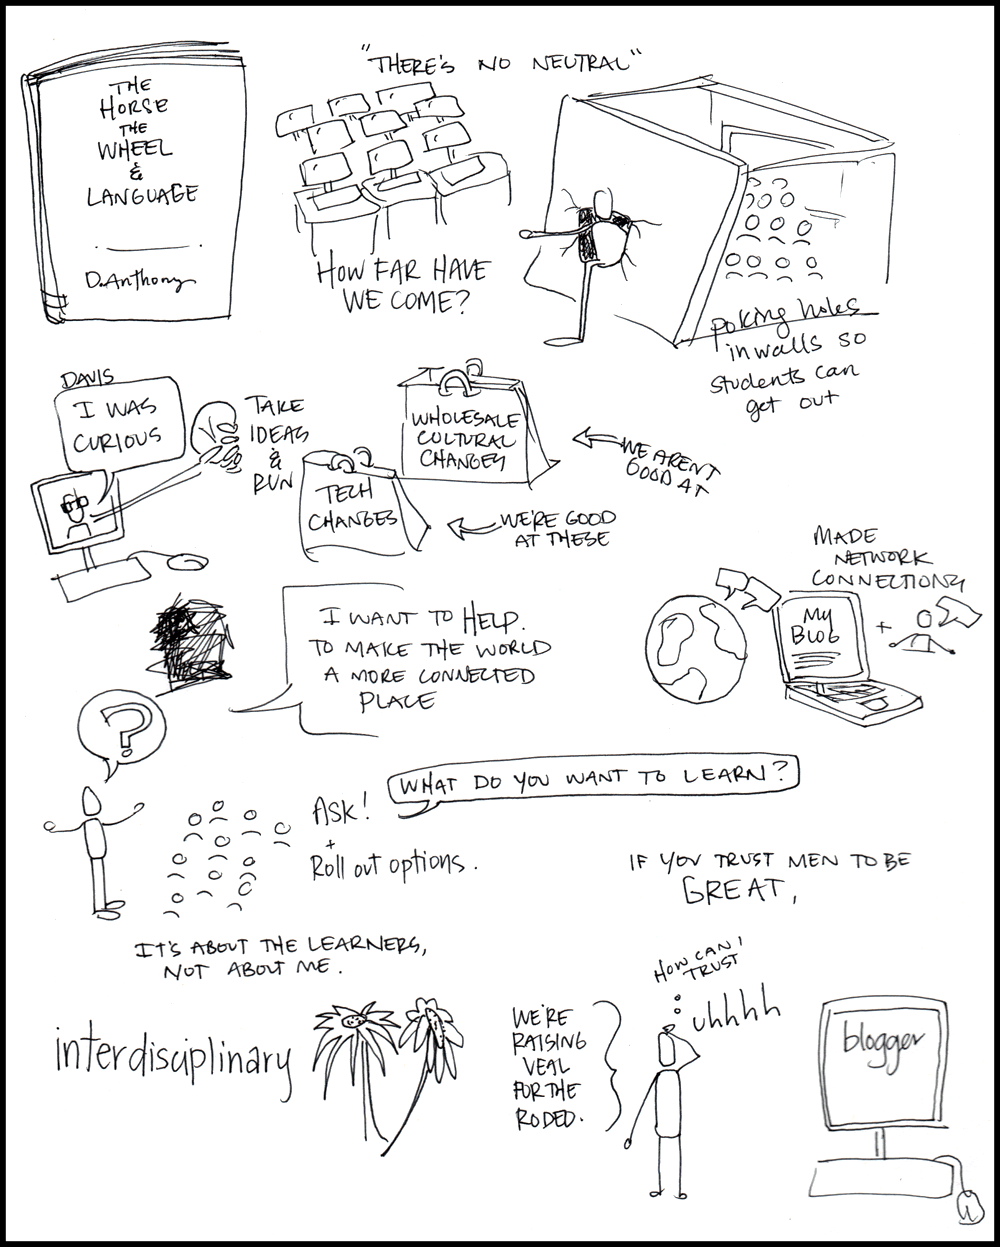 THE
HORSE
THE
WHEEL
&
LANGUAGE
D. Anthony
"THERE'S NO NEUTRAL"
HOW FAR HAVE
WE COME?
poking holes
in walls so
students can
get out
DAVIS
I WAS
CURIOUS
TAKE
IDEAS
&
RUN
WHOLESALE
CULTURAL
CHANGES
WE AREN'T
GOOD AT
TECH
CHANGES
WE'RE GOOD
AT THESE
MADE
NETWORK
CONNECTIONS
MY
BLOG
+
I WANT TO HELP.
TO MAKE THE WORLD
A MORE CONNECTED
PLACE
?
WHAT DO YOU WANT TO LEARN?
ASK!
+
Roll out options.
IF YOU TRUST MEN TO BE
GREAT,
IT'S ABOUT THE LEARNERS,
NOT ABOUT ME.
interdisciplinary
HOW CAN I
TRUST
uhhhh
WE'RE
RAISING
VEAL
FOR THE
RODEO.
blogger